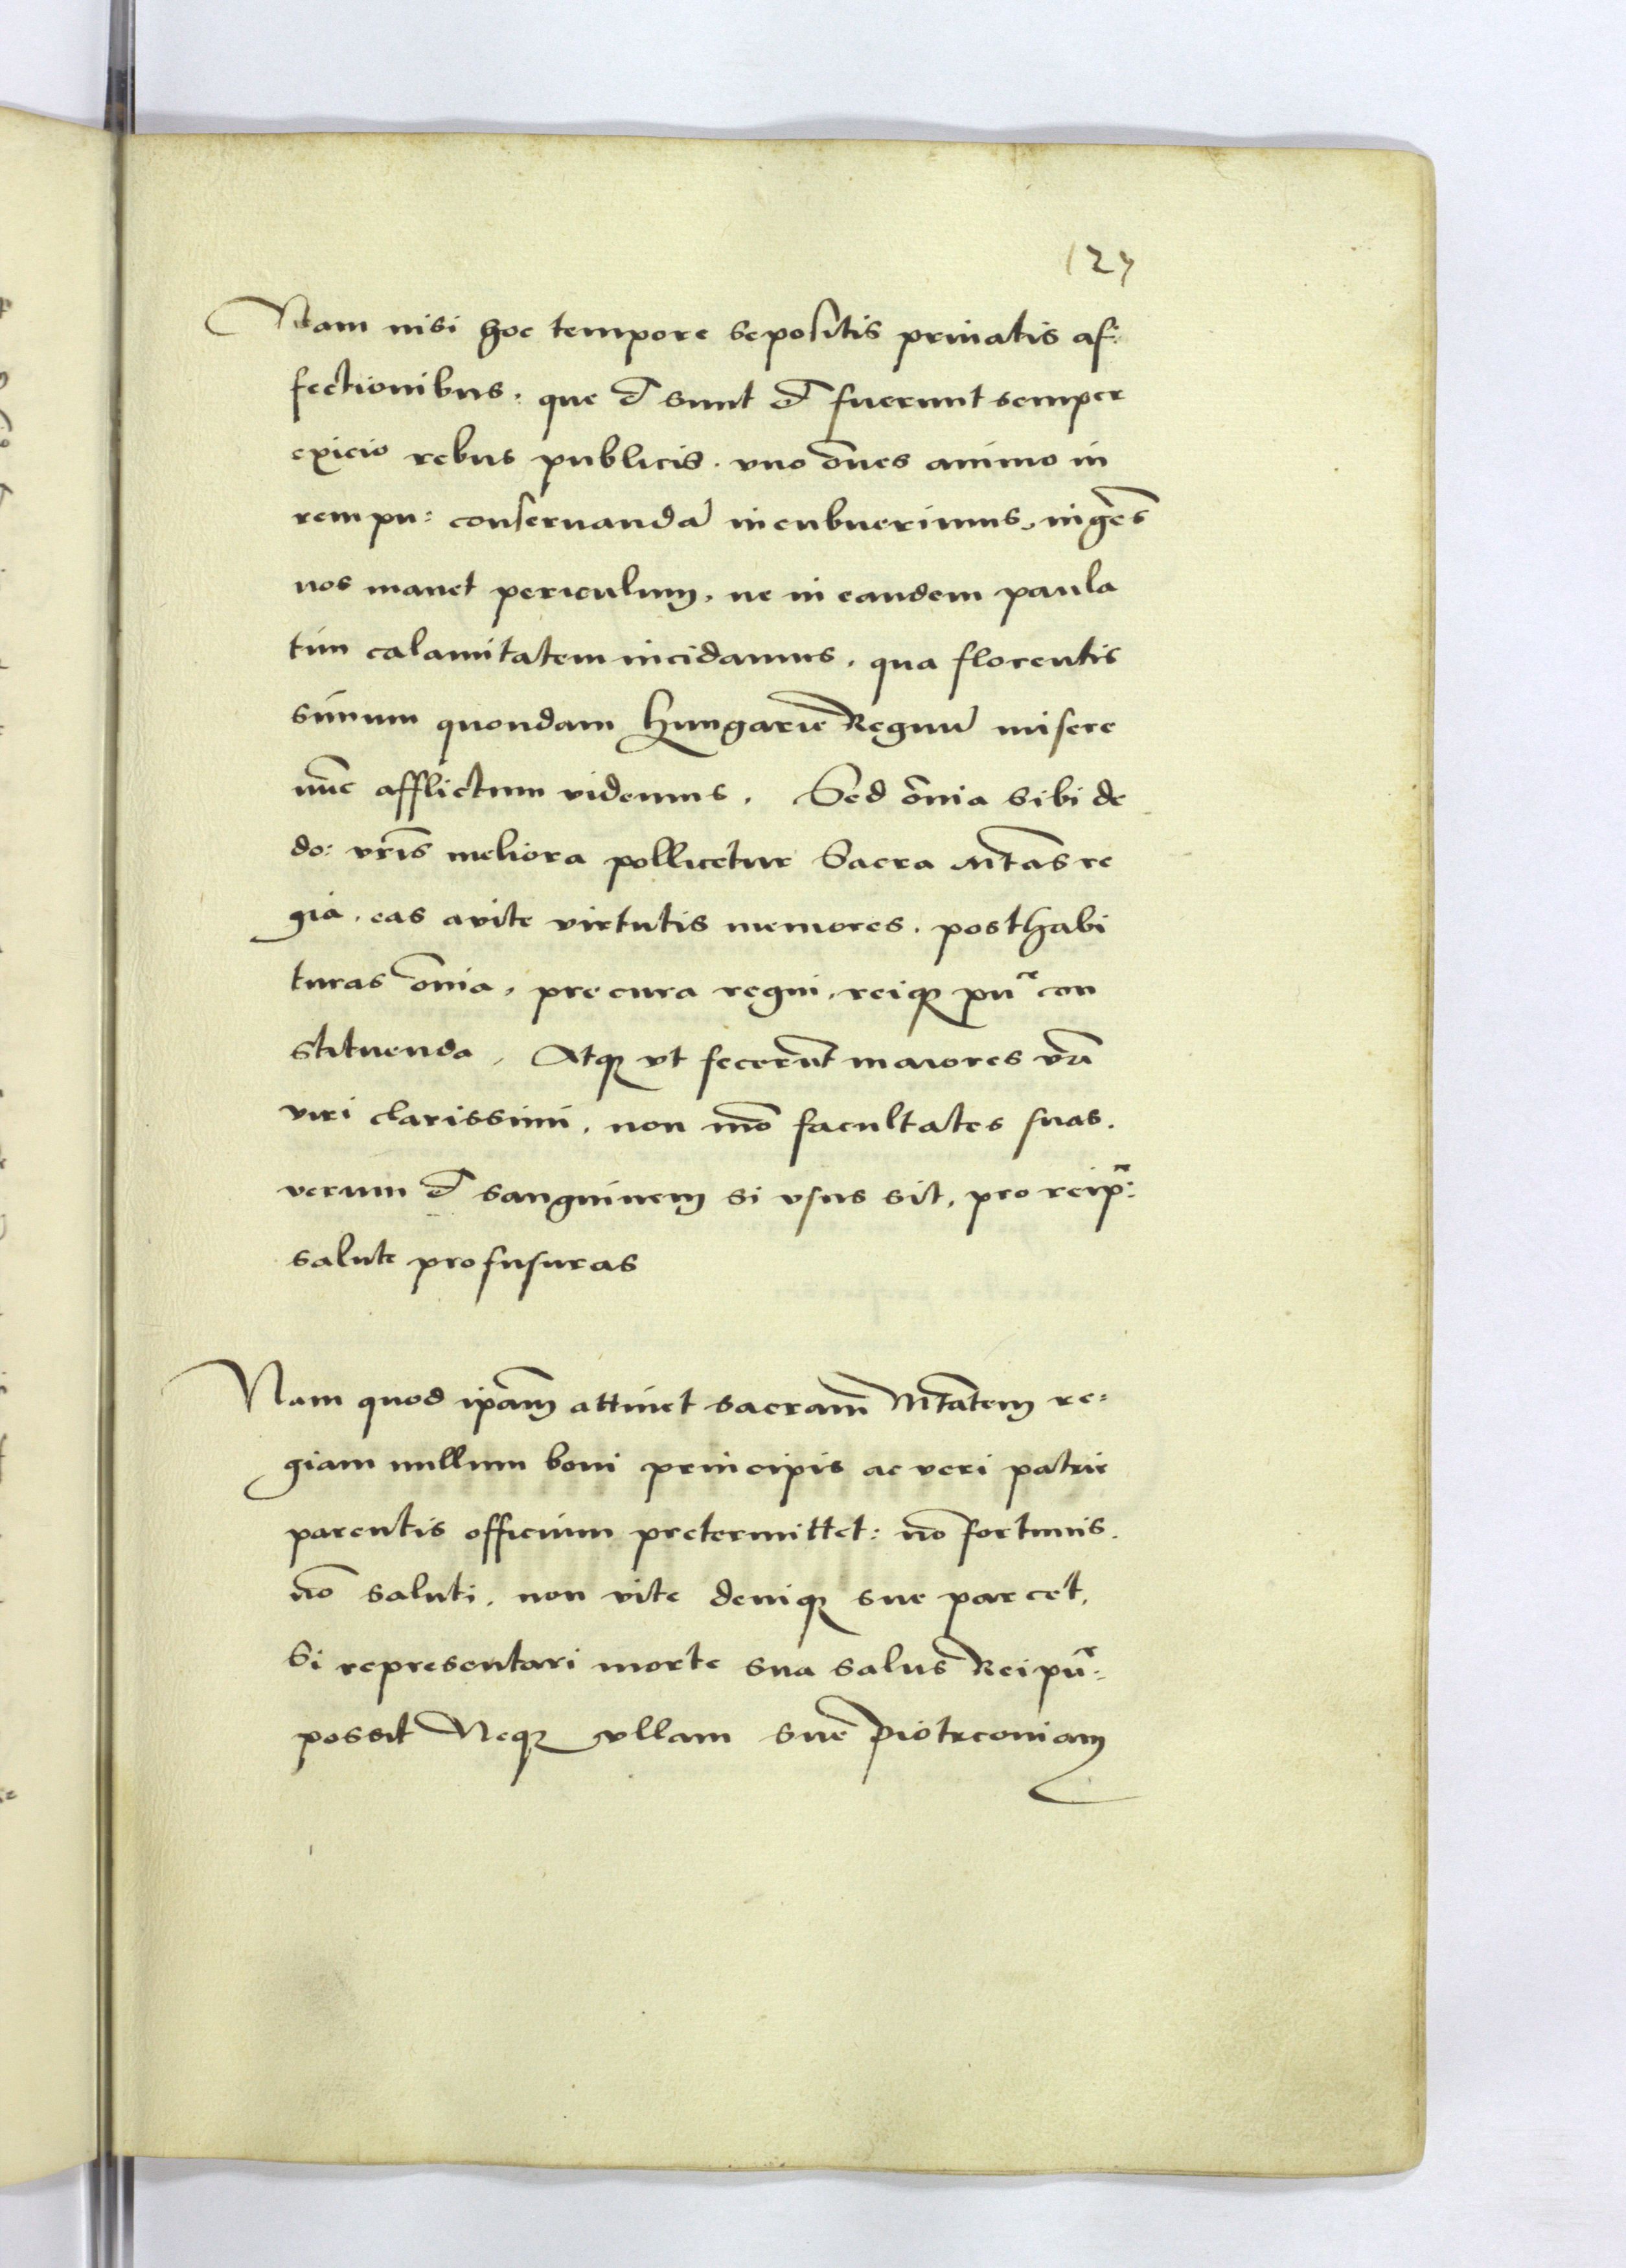 127
Nam nisi hoc tempore sepositis priuatis af:
fectionibus. que et sunt et fuerunt semper
exicio rebus publicis. vno ōnes animo in
rempu: conseruandā incubuerimus, ingēs
nos manet periculum, ne in eandem paula
tim calamitatem incidamus, qua florentis
simum quondam Hungarie Regnū misere
nūc afflictum videmus. Sed ōnia sibi de
do: vr̄is meliora pollicetur Sacra Mtās re
gia, eas avite virtutis memores, posthabi
turas ōnia, pre cura regni, reiqꝫ pu᷑ con
stituenda. Atqꝫ vt fecerūt maiores vr̄i
viri clarissimi, non mō facultates suas.
verum et sanguinem si vsus sit, pro reip᷑:
salute profusuras
Nam quod ip̄am attinet sacram̄ Mtātem re:
giam nullum boni principis ac veri patrie
parentis officium pretermittet: nō fortunis.
nō saluti, non vite deniqꝫ sue parcet,
Si representari morte sua salus Reipu᷑:
possit Neqꝫ vllam suē Piotrconiam